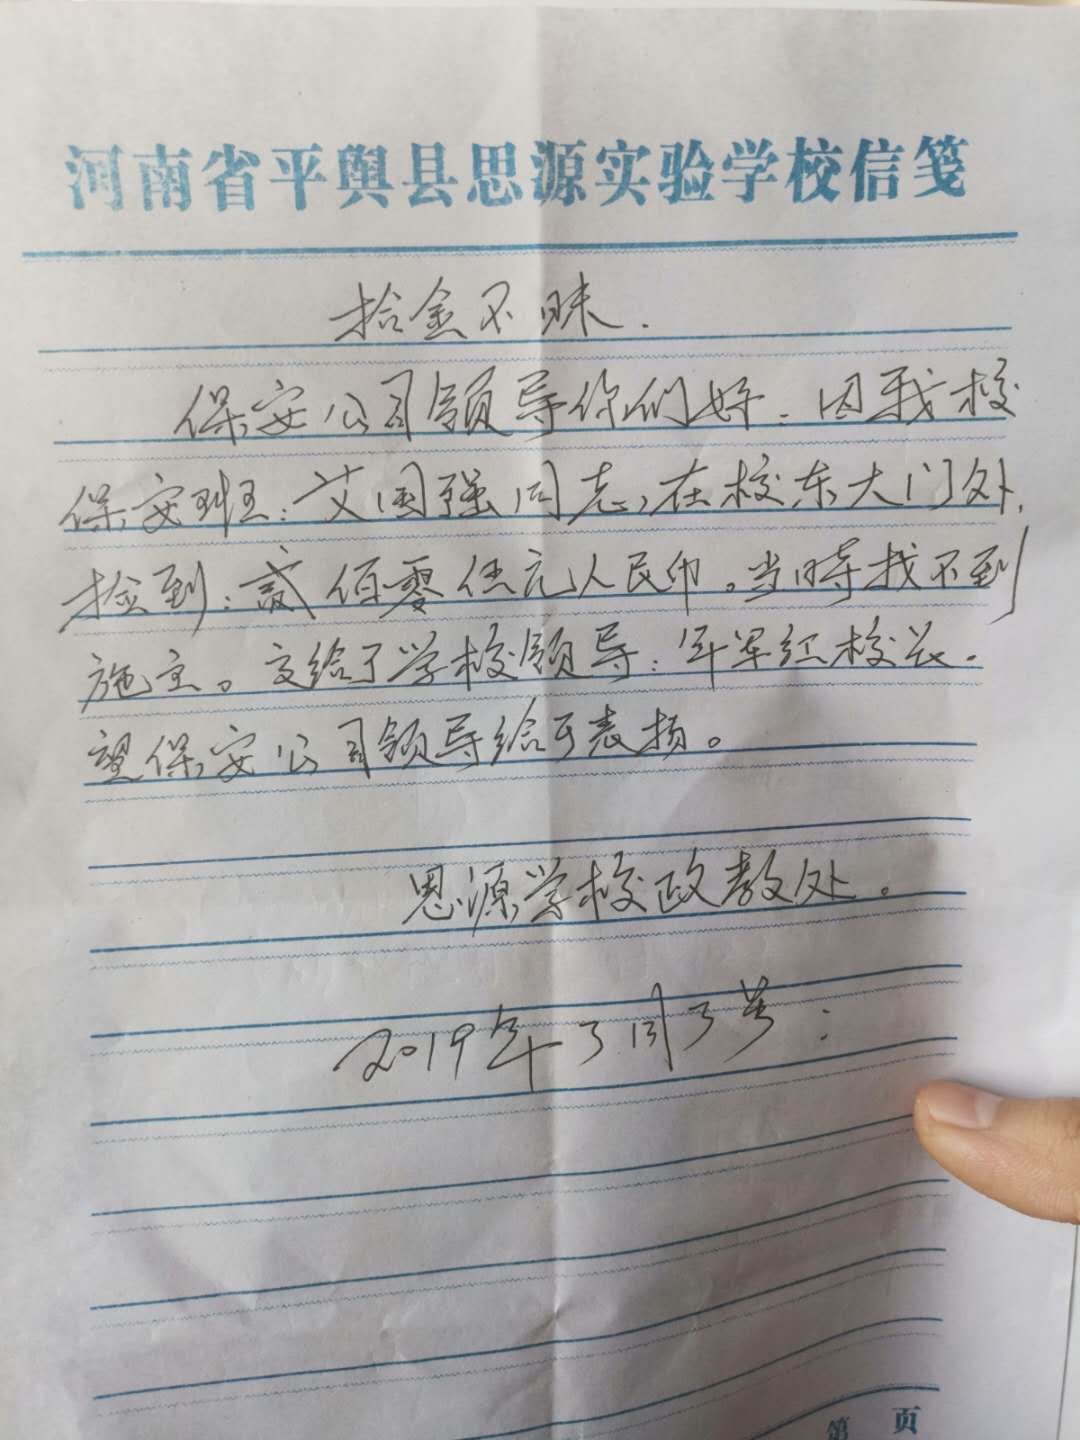 河南省平舆县思源实验学校信笺
拾金不昧.
保安公司领导你们好:因我校
保安班:艾国强同志,在校东大门处,
捡到:贰佰零伍元人民币。当时找不到
施主。交给了学校领导:年军红校长.
望保安公司领导给予表扬。
思源学校政教处。
2019年3月3号:
第 页